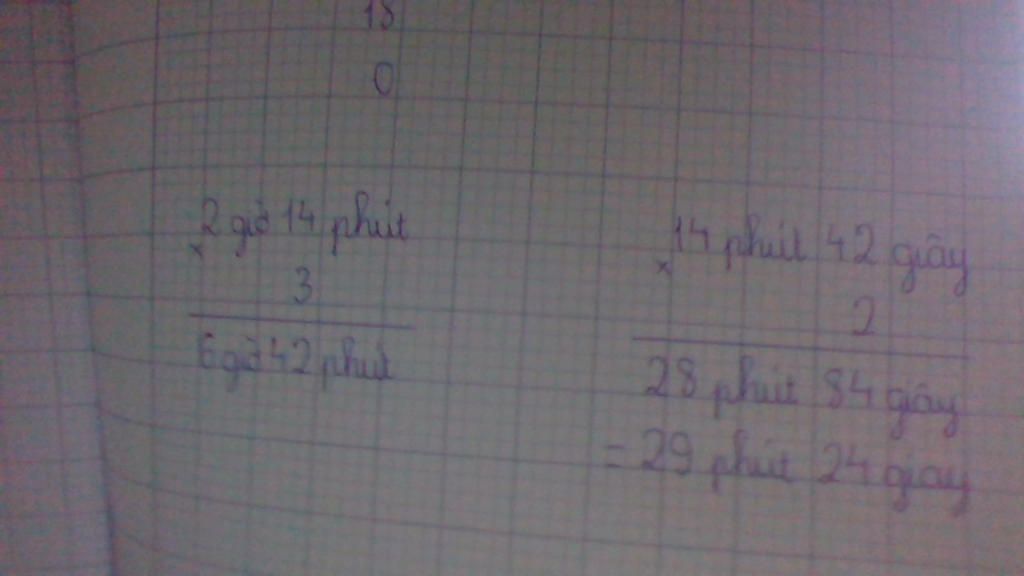 18
0
2 giờ 14 phút
×
3
6 giờ 42 phút
14 phút 42 giây
×
2
28 phút 84 giây
= 29 phút 24 giây